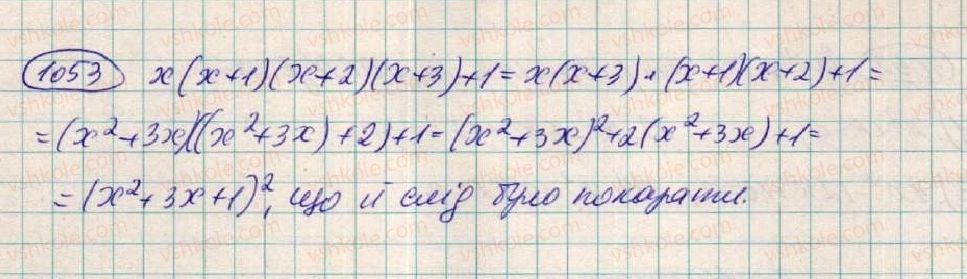 1053 x(x+1)(x+2)(x+3)+1=x(x+3)·(x+1)(x+2)+1=
=(x²+3x)((x²+3x)+2)+1=(x²+3x)²+2(x²+3x)+1=
=(x²+3x+1)², що й слід було показати.